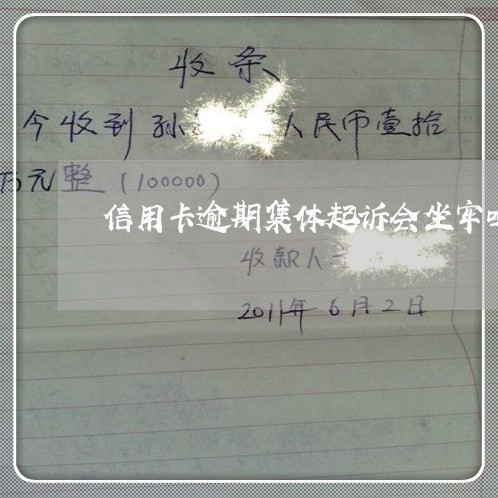 收条
今收到孙 人民币壹拾
万元整（100000）
信用卡逾期集体起诉会坐牢
收款人
2011年6月2日